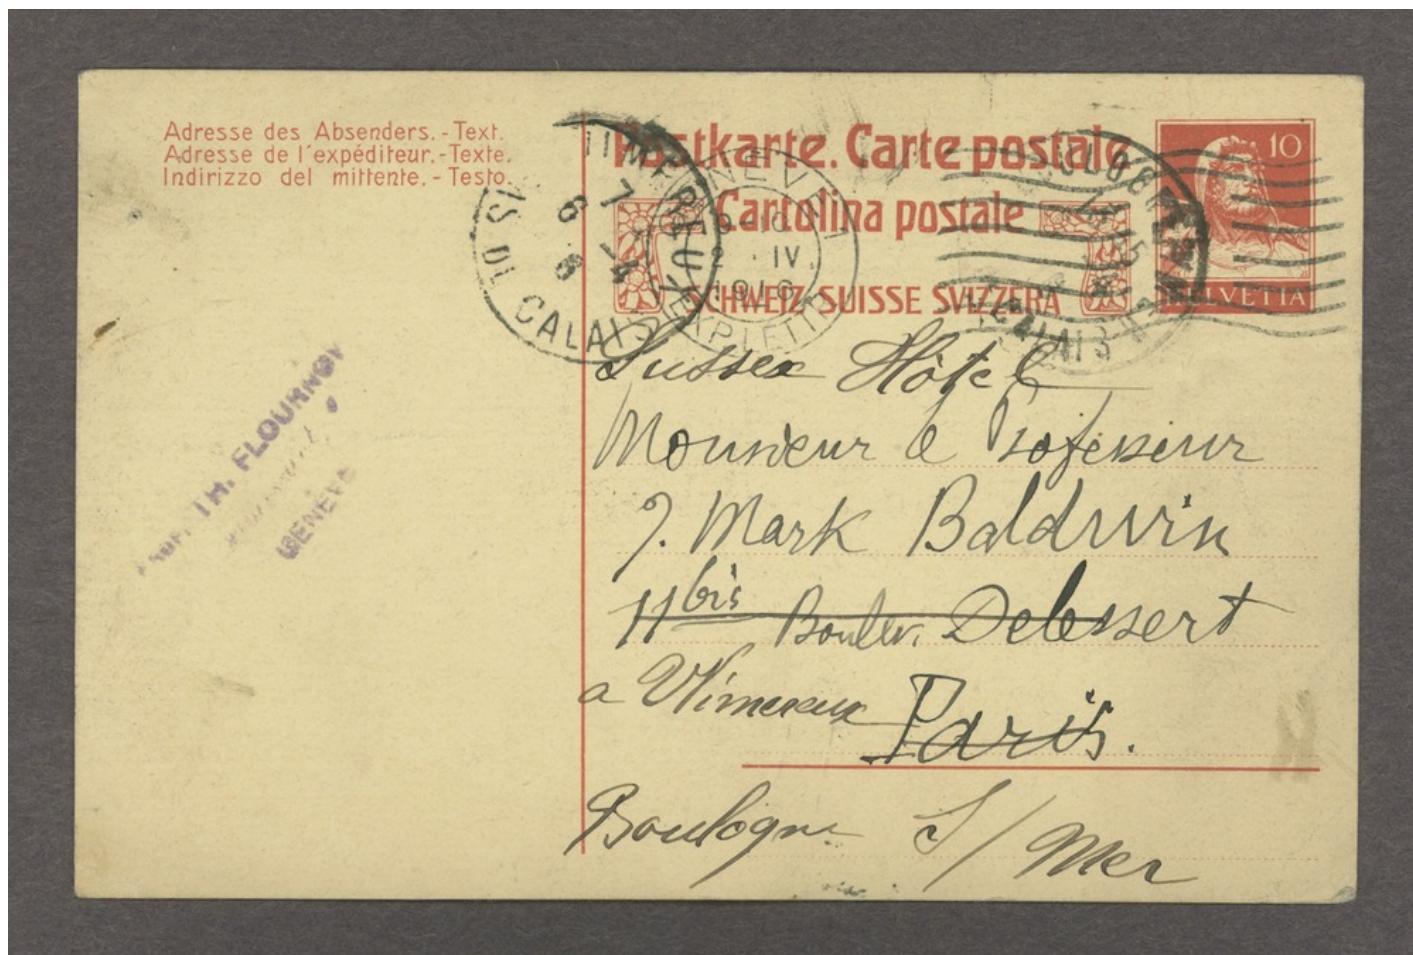 Adresse des Absenders. - Text.
Adresse de l'expéditeur. - Texte.
Indirizzo del mittente. - Testo.
Postkarte. Carte postale
Cartolina postale
SCHWEIZ SUISSE SVIZZERA
10
HELVETIA
WIMEREUX
7 -4
CALAIS
2 . IV.
EXP. LETT
CALAIS
TH. FLOURNOY
GENÈVE
Sussex Hôtel
Monsieur le Professeur
J. Mark Baldwin
11bis Boulev. Delessert
a Wimereux Paris.
Boulogne S/Mer